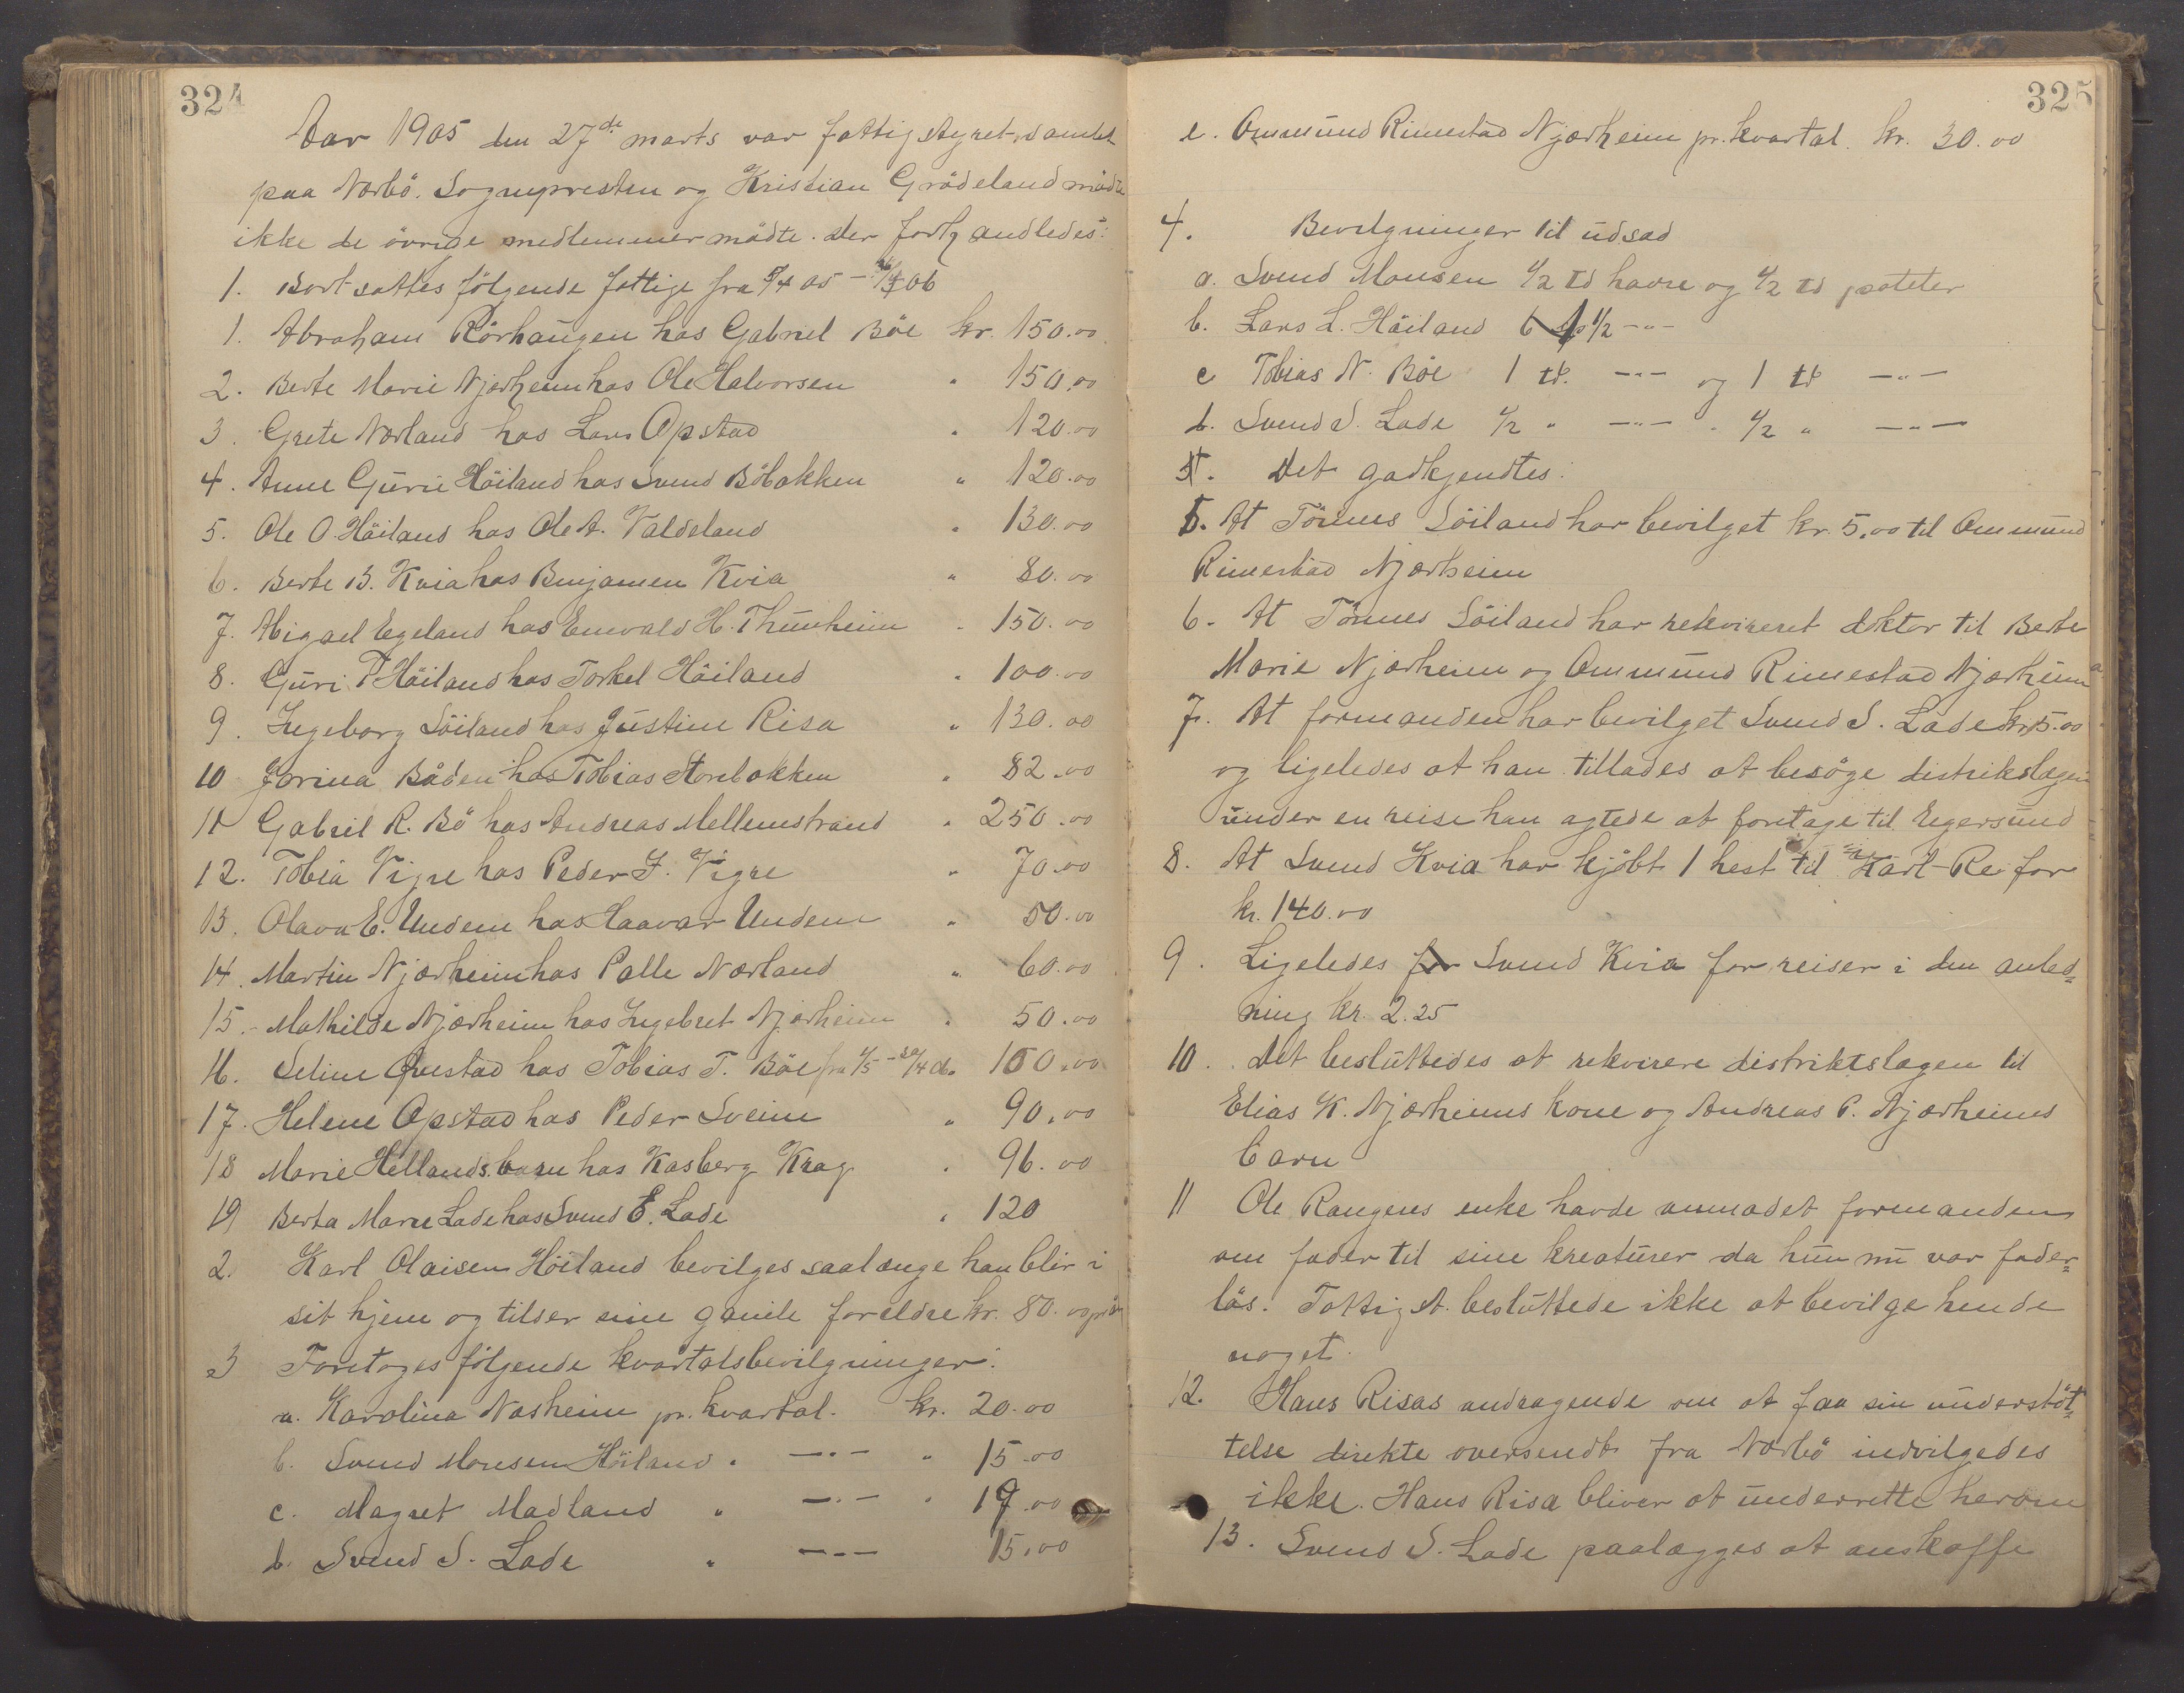 324
Aar 1905 den 27de marts var fattigstyret samlet
paa Nærbö. Sognepresten og Kristian Grödeland mödte
ikke de övrige medlemmer mödte. Der forhandledes:
1. Bortsattes fölgende fattige fra 4/4 05 – 4/4 06
1. Abraham Rörhaugen hos Gabriel Böe kr. 150.00
2. Berte Marie Njærheim hos Ole Halvorsen " 150.00
3. Grete Nærland hos Lars Opstad " 120.00
4. Anne Gurie Höiland hos Svend Böbakken " 120.00
5. Ole O. Höiland hos Ole A. Valdeland " 130.00
6. Berte B. Kvia hos Benjamen Kvia " 80.00
7. Abigael Egeland hos Enevald H. Thunheim " 150.00
8. Guri P Höiland hos Torkel Höiland " 100.00
9. Ingeborg Söiland hos Justine Risa " 130.00
10 Jorina Båden hos Tobias Storebakken " 82.00
11 Gabriel R. Bö hos Andreas Mellemstrand " 250.00
12. Tobia Vigre hos Peder J. Vigre " 70.00
13. Olava E. Undem hos Haavar Undem " 50.00
14. Martin Njærheim hos Palle Nærland " 60.00
15. Mathilde Njærheim hos Ingebret Njærheim " 50.00
16. Seline Qvestad hos Tobias T. Böe fra 1/5 – 30/4 06 100.00
17. Helene Opstad hos Peder Sveine " 90.00
18 Marie Hellands barn hos Kasberg Krag " 96.00
19 Berta Marie Lode hos Svend E. Lode " 120
2. Karl Olaisen Höiland bevilges saalænge han blir i
sit hjem og tilser sine gamle foreldre kr. 80.00 pr år
3 Foretoges fölgende kvartalsbevilgninger:
a. Karolina Nasheim pr. kvartal. kr. 20.00
b. Svend Monsen Höiland " —"— " 15.00
c. Magret Madland " —"— " 19.00
d. Svend S. Lode " —"— 15.00
325
e. Ommund Rimestad Njærheim pr. kvartal. kr. 30.00
4. Bevilgninger til udsæd
a. Svend Monsen 1/2 td havre og 1/2 td poteter
b. Lars L. Höiland 1 1/2 —"—
c Tobias N. Böe 1 td. —"— og 1 td —"—
d. Svend S. Lode 1/2 " —"— " 1/2 " —"—
Det godkjendtes:
5. At Tönnes Söiland har bevilget kr. 5.00 til Ommund
Rimestad Njærheim
6. At Tönnes Söiland har rekvireret doktor til Berte
Marie Njærheim og Ommund Rimestad Njærheim
7. At formanden har bevilget Svend S. Lode kr 5.00
og ligeledes at han tillades at besöge distrikslægen
under en reise han agtede at foretage til Egersund
8. At Svend Kvia har kjöbt 1 hest til Karl Rei for
kr. 140.00
9. Ligeledes for Svend Kvia for reiser i den anled=
ning kr. 2.25
10. Det besluttedes at rekvirere distriktslægen til
Elias K. Njærheims kone og Andreas P. Njærheims
barn
11 Ole Raugens enke havde anmodet formanden
om foder til sine kreaturer da hun nu var foder=
lös. Fattigst. besluttede ikke at bevilge hende
noget.
12. Hans Risas andragende om at faa sin understöt=
telse direkte oversendt fra Nærbö indvilgedes
ikke. Hans Risa bliver at underrette herom
13. Svend S. Lode paalægges at anskaffe